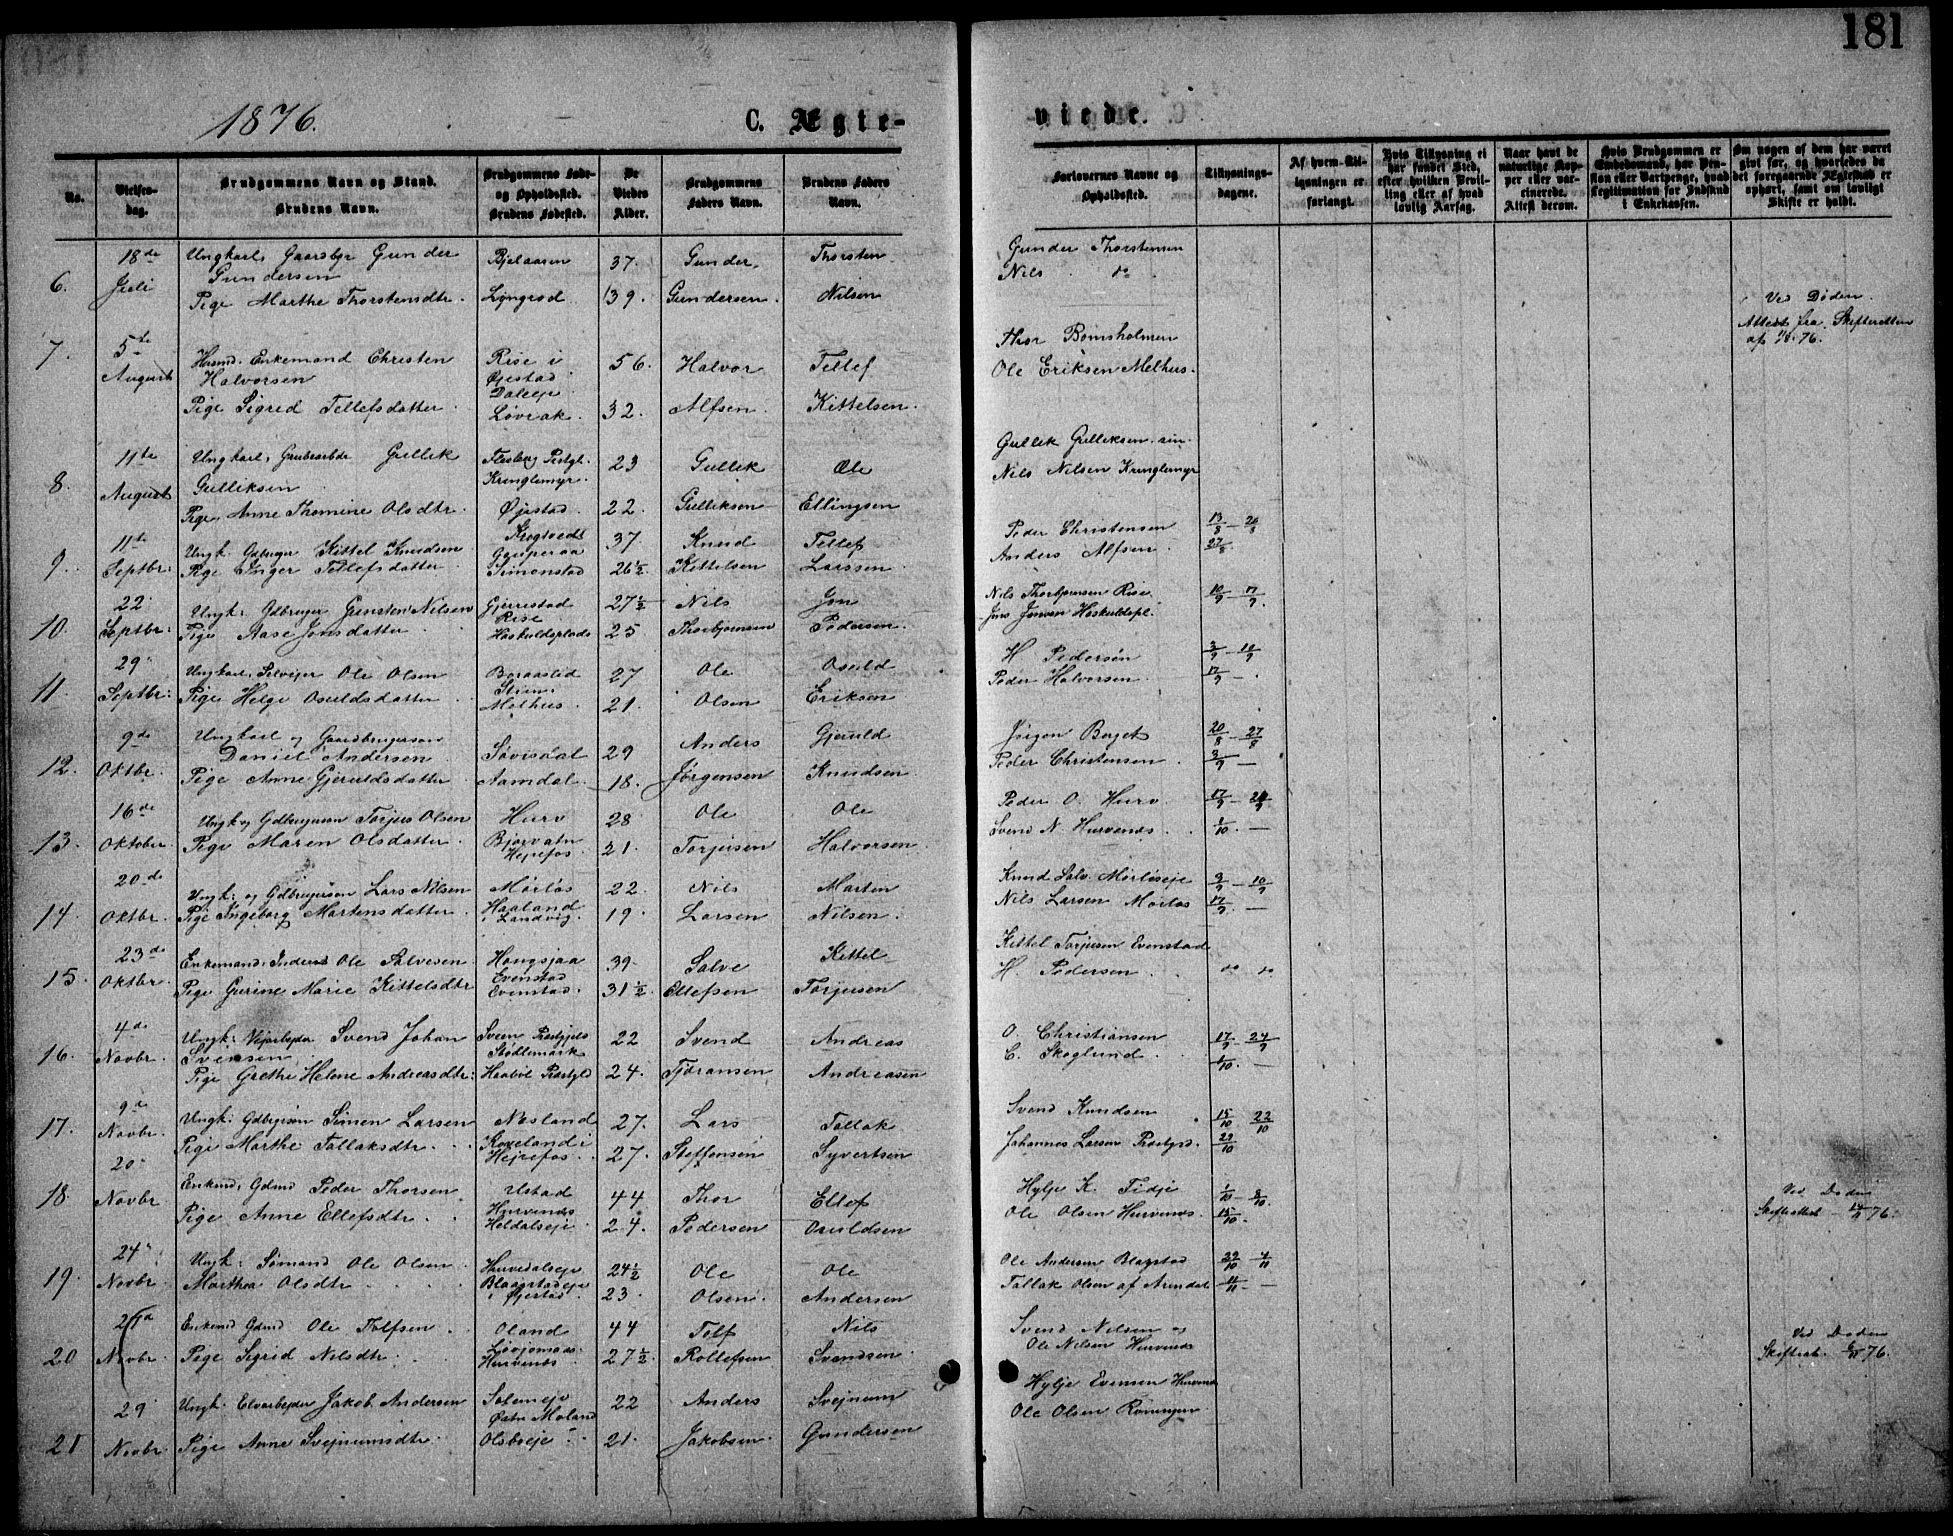 181
1876.
C. Ægte-
viede.
No.
Vielses-
dag.
Brudgommens Navn og Stand.
Brudens Navn.
Brudgommens Føde-
og Opholdssted.
Brudens Fødested.
De
Viedes
Alder.
Brudgommens
Faders Navn.
Brudens Faders
Navn.
Forlovernes Navne og
Opholdssted.
Tillysnings-
dagene.
Af hvem Til-
lysningen er
forlangt.
Hvis Tillysning ei
har fundet Sted,
efter hvilken Bevil-
ling eller af hvad
lovlig Aarsag.
Naar havt de
naturlige Kop-
per eller vac-
cinerede.
Attest derom.
Hvis Brudgommen er
Embedsmand, har Pen-
sion eller Vartpenge, hvad
Legitimation for Indskud
i Enkekassen.
Om nogen af dem har været
gift før, og hvorledes da
det foregaaende Ægteskab er
ophørt, samt om lovligt
Skifte er holdt.
6. 18de Juli
Ungkarl, Gaarsbgr Gunder
Gundersen
Pige Marthe Thorstensdtr.
Bjelaaren 37. Gunder Thorsten
Løngrod 39. Gundersen. Nilsen
Gunder Thorstensen
Nils do
7. 5te August
Husmd. Enkemand Christen
Halvorsen
Pige Sigrid Tellefsdatter.
Rise i
Øjestad
Daleeje
Løvrak.
56. Halvor Tellef
32. Alfsen. Kittelsen.
Thor Bomsholmen
Ole Eriksen Melhus.
Ved Døden.
Attest fra Skifteretten
af 1/8. 76.
8. 11te August
Ungkarl, Grubearbdr Gullik
Gulliksen
Pige Anne Thomine Olsdtr.
Flesberg Prstgl.
Kringlemyr
Øjestad.
23 Gullik Ole
22. Gulliksen Ellingsen
Gullik Gulliksen sen.
Nils Nilsen Kringlemyr
9. 11te Septbr:
Ungk. Gdbruger Kittel Knudsen
Pige Inger Tellefsdatter
Simonstad
37 Knud Tellef
26½ Kittelsen Larssen
Peder Christensen 13/8 – 20/8
Anders Alfsen. 27/8.
10. 22 Septbr:
Ungk: Gdbruger Gunsten Nilsen
Pige Aase Jonsdatter
Gjerrestad
Rise
Haskuldsplads
27½ Nils Jon
25 Thorbjørnsen Pedersen.
Nils Thorbjørnsen Rise 10/9 – 17/9.
Jens Jensen Haskuldspl.
11. 29 Septbr:
Ungkarl, Selvejer Ole Olsen
Pige Helge Osuldsdatter
Boraaslid
Melhus.
27 Ole Osuld
21. Olsen Eriksen
H Pedersen 3/9 – 10/9
Peder Halvorsen. 17/9 – .
12. 9de Oktbr.
Ungkarl og Gaardbrugersøn
Daniel Andersen
Pige Anne Gjeruldsdatter
Søvisdal
Aamdal.
29 Anders Gjeruld
18. Jørgensen Knudsen
Jørgen Berget 20/8 – 27/8
Peder Christensen. 3/9 –
13. 16de Oktober
Ungk og Gdbrugersøn Torjus Olsen
Pige Maren Olsdatter.
Hurv
Bjorvatn
Hejrefos
28 Ole Ole
21. Torjusen Halvorsen
Peder O. Hurv. 17/9 – 24/9
Svend N. Hurvenæs. 1/10. –
14. 20de Oktbr.
Ungk: og Gdbrugersøn Lars Nilsen
Pige Ingeborg Martensdatter.
Mørlås
Haaland
i Landvig.
22. Nils Marten
19. Larsen Nilsen.
Knud Salv. Mørlåseje 3/9 – 10/9
Nils Larsen Mørlås 17/9. –
15. 23de Oktbr.
Enkemand, Inderst Ole Salvesen
Pige Gurine Marie Kittelsdtr
Hangsjaa
Evenstad
Evenstad.
39. Salve Kittel
31½. Ellefsen Torjusen
Kittel Torjusen Evenstad
H. Pedersen. do do
16. 4de Novbr.
Ungk: Vejarbejder Svend Johan
Svensen
Pige Grethe Helene Andreasdtr:
Sveen Prstgjeld
Stødlemark
Haabøl Prstgld
22 Svend Andreas
24. Tjøransen Andreasen
O. Christiansen 17/9 24/9
C. Skoglund. 1/10. –
17. 9de Novbr.
Ungk: Gdbrgsøn Simon Larsen
Pige Marthe Tallaksdtr.
Næsland
Roveland i
Hejrefos
27. Lars Tallak
27. Steffensen Syvertsen
Svend Knudsen 15/10 22/10
Johannes Larsen Prestgrd. 29/10
18. 20 Novbr
Enkemd. Gdmd Peder Thorsen
Pige Anne Ellefsdtr.
Ulstad
Hurvenæs
Heldalseje.
44 Thor Ellef
24. Pedersen Osuldsen
Hylje K. Tidje 1/10 – 8/10.
Ole Olsen Hurvenæs. 15/10.
Ved Døden
Skifteattest 14/11 76.
19. 24 Novbr
Ungk: Sømand Ole Olsen
Marthea Olsdtr
Hurvedalseje
Blaagstadeje
i Øjestad.
24½ Ole Ole
23. Olsen. Andersen
Ole Andersen Blagstad 29/10 4/11
Tallak Olsen af Arendal 11/11 –
20 Novbr.
Enkemd Gdmd Ole Tolfsen.
Pige Sigrid Nilsdtr.
Oland
Hurvenæs.
44 Tolf Nils
27½. Rollefsen Svendsen.
Svend Nilsen og
Ole Nilsen Hurvenæs
Ved Døden
Skifteatt. 6/11 76.
21 29 Novbr.
Ungk. Elvarbejder Jakob Andersen
Pige Anne Svejnumsdtr.
Solemeje
Østre Moland
Olsbueje
22 Anders Svejnum
21. Jakobsen. Gundersen
Hylje Evensen Hurvenæs
Ole Olsen Rømyren.